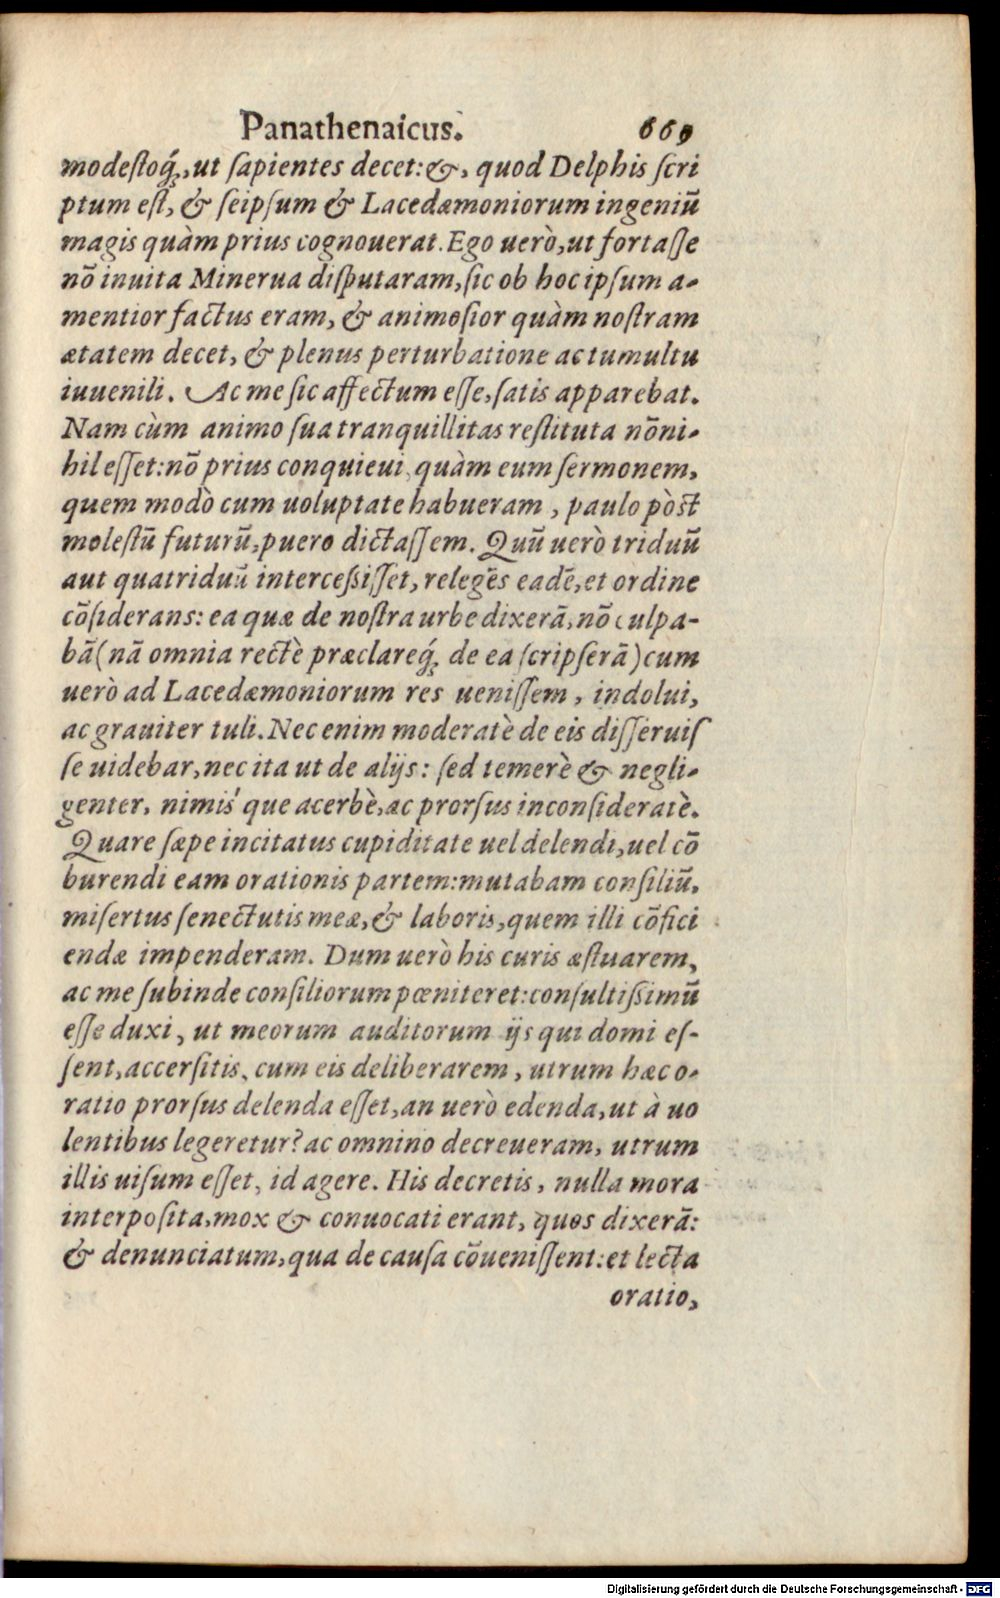 Panathenaicus. 669
modeſtoq́;, ut ſapientes decet: &, quod Delphis ſcri
ptum eſt, & ſeipſum & Lacedæmoniorum ingeniū
magis quàm prius cognouerat. Ego uerò, ut fortaſſe
nō inuita Minerua diſputaram, ſic ob hoc ipſum a-
mentior factus eram, & animoſior quàm noſtram
ætatem decet, & plenus perturbatione ac tumultu
iuuenili. Ac me ſic affectum eſſe, ſatis apparebat.
Nam cùm animo ſua tranquillitas reſtituta nō ni-
hil eſſet: nō prius conquieui, quàm eum ſermonem,
quem modò cum uoluptate habueram, paulo pòst
moleſtū futurū, puero dictaſſem. Quū uerò triduū
aut quatriduū interceßiſſet, relegēs eadē, et ordine
cōſiderans: ea quæ de noſtra urbe dixerā, nō culpa-
bā (nā omnia rectè præclareq́; de ea ſcripſerā) cum
uerò ad Lacedæmoniorum res ueniſſem, indolui,
ac grauiter tuli. Nec enim moderatè de eis diſſeruiſ
ſe uidebar, nec ita ut de alijs: ſed temerè & negli-
genter, nimiś que acerbè, ac prorſus inconſideratè.
Quare ſæpe incitatus cupiditate uel delendi, uel cō
burendi eam orationis partem: mutabam conſiliū,
miſertus ſenectutis meæ, & laboris, quem illi cōfici
endæ impenderam. Dum uerò his curis æſtuarem,
ac me ſubinde conſiliorum pœniteret: conſultißimū
eſſe duxi, ut meorum auditorum ijs qui domi eſ-
ſent, accerſitis, cum eis deliberarem, utrum hæc o-
ratio prorſus delenda eſſet, an uerò edenda, ut à uo
lentibus legeretur? ac omnino decreueram, utrum
illis uiſum eſſet, id agere. His decretis, nulla mora
interpoſita, mox & conuocati erant, quos dixerā:
& denunciatum, qua de cauſa cōueniſſent: et lecta
oratio,
Digitalisierung gefördert durch die Deutsche Forschungsgemeinschaft - DFG